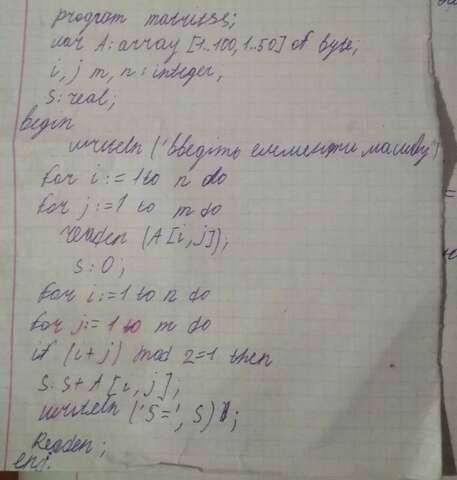 program matritss;
var A: array [1..100,1..50] of byte;
i, j m, n: integer,
S: real;
begin
writeln ('Введіть елементи масиву')
for i:=1 to n do
for j:=1 to m do
readen (A[i,j]);
s:0;
for i:=1 to n do
for j:=1 to m do
if (i+j) mod 2=1 then
S: S+A[i,j];
writeln ('S=', S);
Readen;
end.